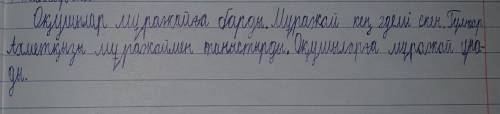 Оқушылар мұражайға барды. Мұражай кең әдемі екен. Гүлнар
Ахметқызы мұражаймен таныстырды. Оқушыларға мұражай ұна-
ды.